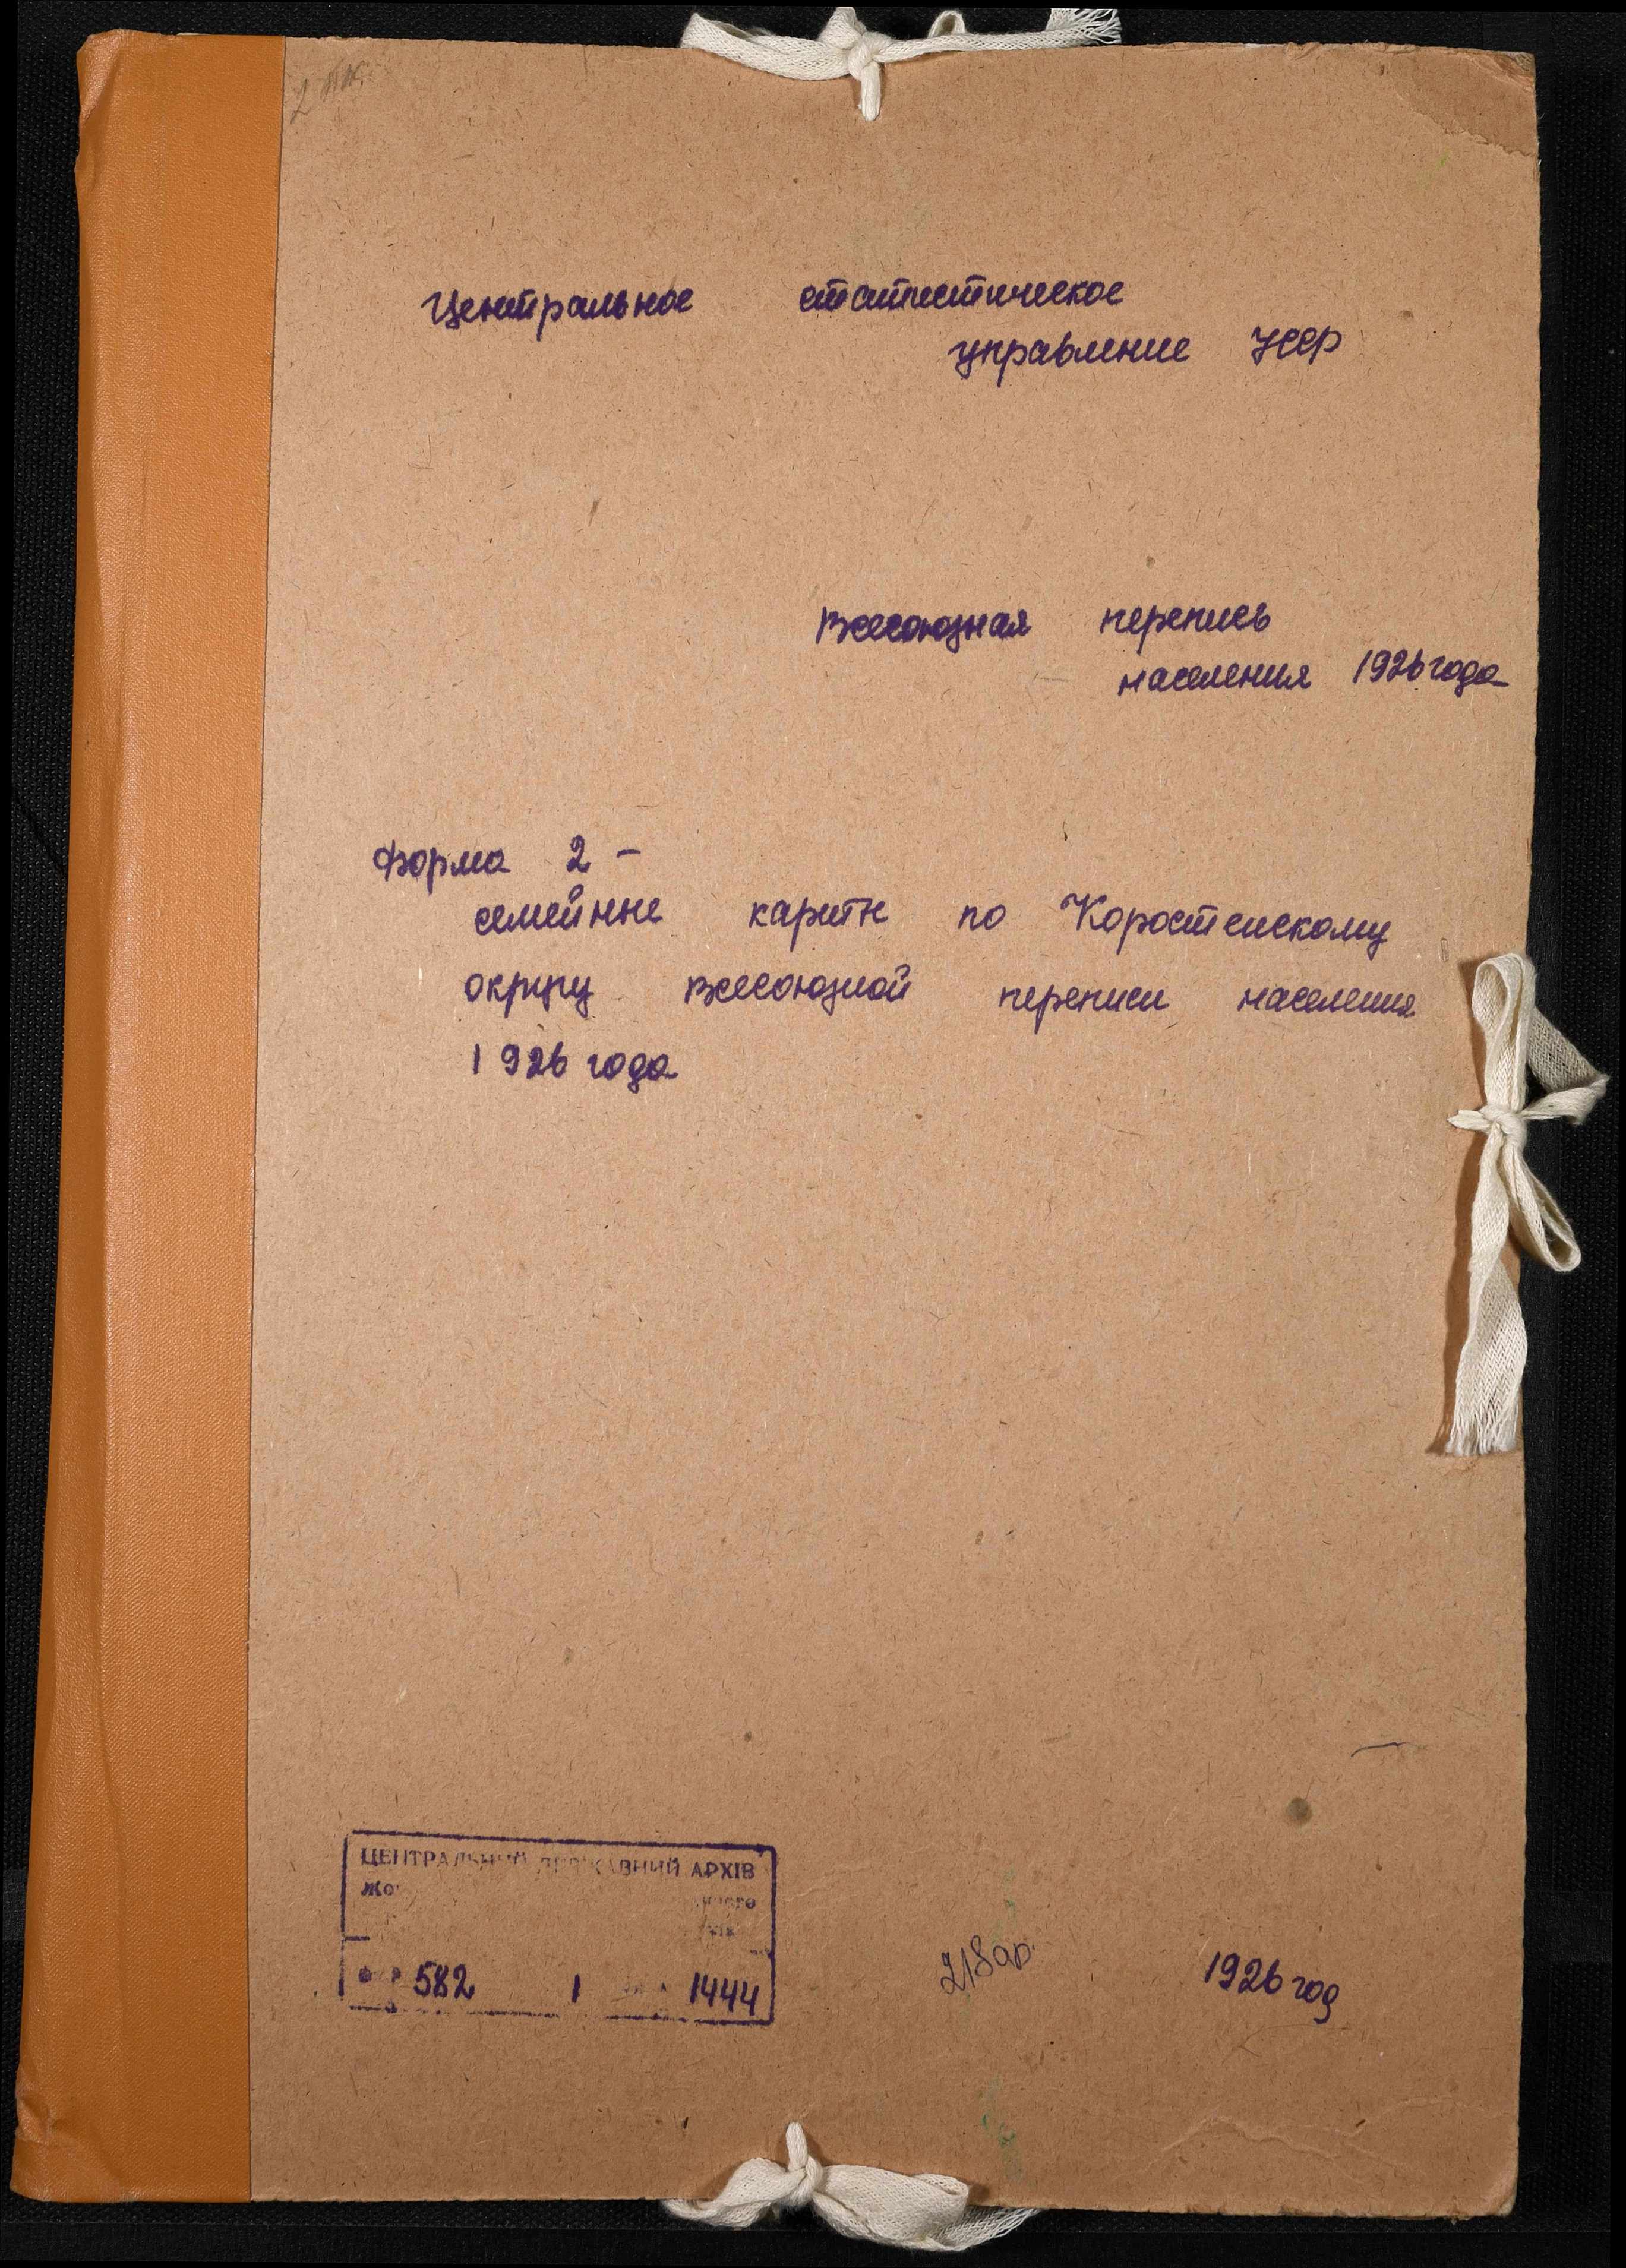 Центральное статистическое
управление УССР
Всесоюзная перепись
населения 1926 года
Форма 2 –
семейные карты по Коростенскому
округу всесоюзной переписи населения
1926 года
ЦЕНТРАЛЬНИЙ ДЕРЖАВНИЙ АРХІВ
582 1 1444
218 ар.
1926 год